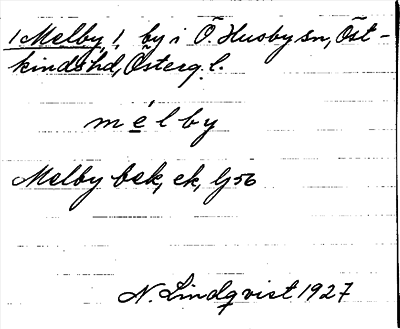 1 Melby, 1, by i Ö Husby sn, Öst-
kinds hd, Österg. l.
m é l b y
Melby bek, ek, Gj 56
N. Lindqvist 1927